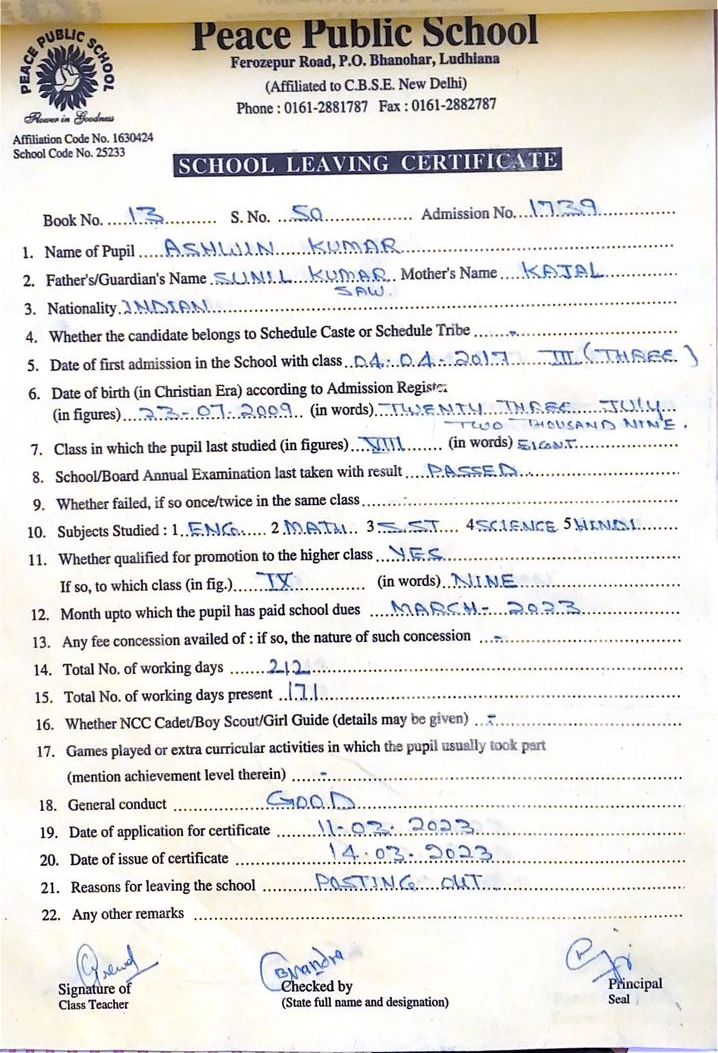 PEACE PUBLIC SCHOOL
Flower in Goodness
Peace Public School
Ferozepur Road, P.O. Bhanohar, Ludhiana
(Affiliated to C.B.S.E. New Delhi)
Phone : 0161-2881787 Fax : 0161-2882787
Affiliation Code No. 1630424
School Code No. 25233
SCHOOL LEAVING CERTIFICATE
Book No. 13 S. No. 50 Admission No. 1739
1. Name of Pupil ASHWIN KUMAR
2. Father's/Guardian's Name SUNIL KUMAR Mother's Name KAJAL
SAW.
3. Nationality INDIAN
4. Whether the candidate belongs to Schedule Caste or Schedule Tribe -
5. Date of first admission in the School with class 04.04.2017 III (THREE)
6. Date of birth (in Christian Era) according to Admission Register
(in figures) 23-07-2009 (in words) TWENTY THREE JULY
TWO THOUSAND NINE.
7. Class in which the pupil last studied (in figures) VIII (in words) EIGHT
8. School/Board Annual Examination last taken with result PASSED
9. Whether failed, if so once/twice in the same class -
10. Subjects Studied : 1 ENG. 2 MATH 3 S.ST 4 SCIENCE 5 HINDI
11. Whether qualified for promotion to the higher class YES
If so, to which class (in fig.) IX (in words) NINE
12. Month upto which the pupil has paid school dues MARCH - 2023
13. Any fee concession availed of : if so, the nature of such concession -
14. Total No. of working days 212
15. Total No. of working days present 171
16. Whether NCC Cadet/Boy Scout/Girl Guide (details may be given) -
17. Games played or extra curricular activities in which the pupil usually took part
(mention achievement level therein) -
18. General conduct GOOD
19. Date of application for certificate 11-03-2023
20. Date of issue of certificate 14-03-2023
21. Reasons for leaving the school POSTING OUT
22. Any other remarks
Signature of Checked by Principal
Class Teacher (State full name and designation) Seal